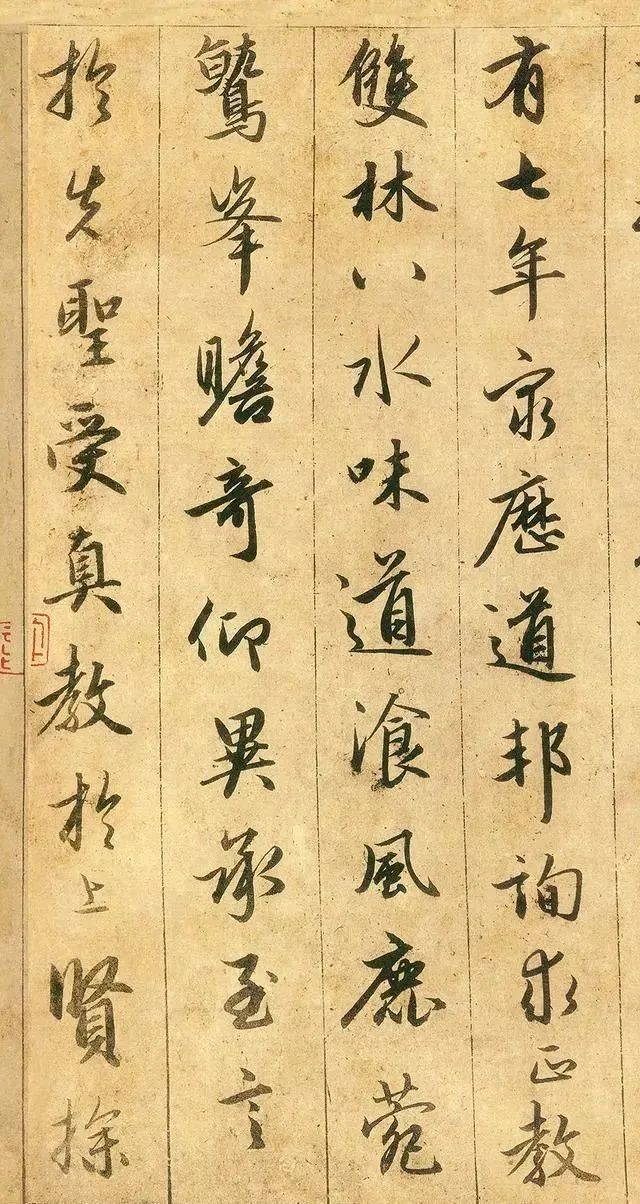 有七年窮歷道邦詢求正教
雙林八水味道湌風鹿菀
鷲峯瞻奇仰異承至言
於先聖受真教於上賢探